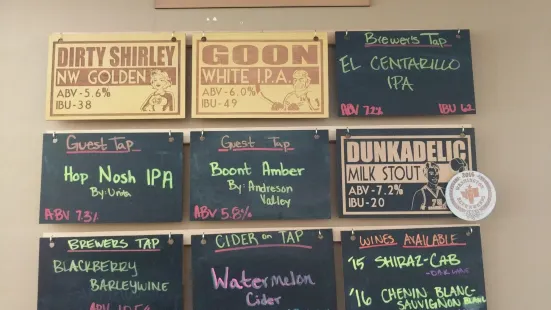 DIRTY SHIRLEY
NW GOLDEN
ABV-5.6%
IBU-38
GOON
WHITE I.P.A.
ABV-6.0%
IBU-49
Brewer's Tap
EL CENTARILLO
IPA
ABV 7.2%
IBU 62
Guest Tap
Hop Nosh IPA
By: Uinta
ABV 7.3%
Guest Tap
Boont Amber
By: Andreson
Valley
ABV 5.8%
DUNKADELIC
MILK STOUT
ABV-7.2%
IBU-20
BREWERS TAP
BLACKBERRY
BARLEYWINE
CIDER on TAP
Watermelon
Cider
WINES AVAILABLE
'15 SHIRAZ-CAB
'16 CHENIN BLANC-
SAUVIGNON BLANC